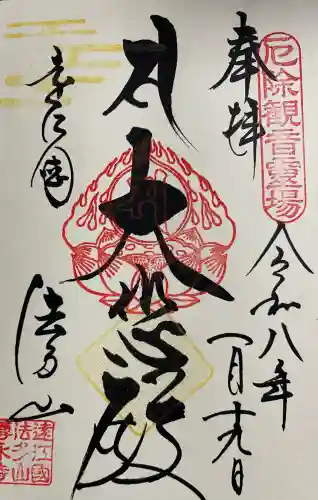 奉拝
厄除観音霊場
令和八年
一月十九日
大悲殿
遠江國
法多山
遠江國
法多山
尊永寺